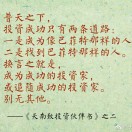 普天之下，
投资成功只有两条道路：
一是成为像巴菲特那样的人
二是找到巴菲特那样的人。
换言之就是，
或成为成功的投资家，
或追随成功的投资家，
别无其他。
——《天南致投资伙伴书》之二